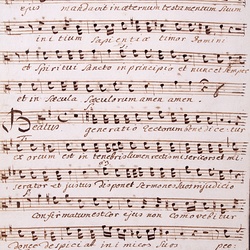 ejus mandavit in æternum testamentum Suum
initium Sapientiæ timor Domini
et Spiritui Sancto in principio et nunc et semper
et in Sæcula Sæculorum amen amen.
Beatus generatio rectorum benedicetur
exortum est in tenebris lumen rectis misericors et mi
serator et justus disponet Sermones Suos in judicio
confirmatum est cor ejus non comovebitur
Donec despiciat inimicos Suos